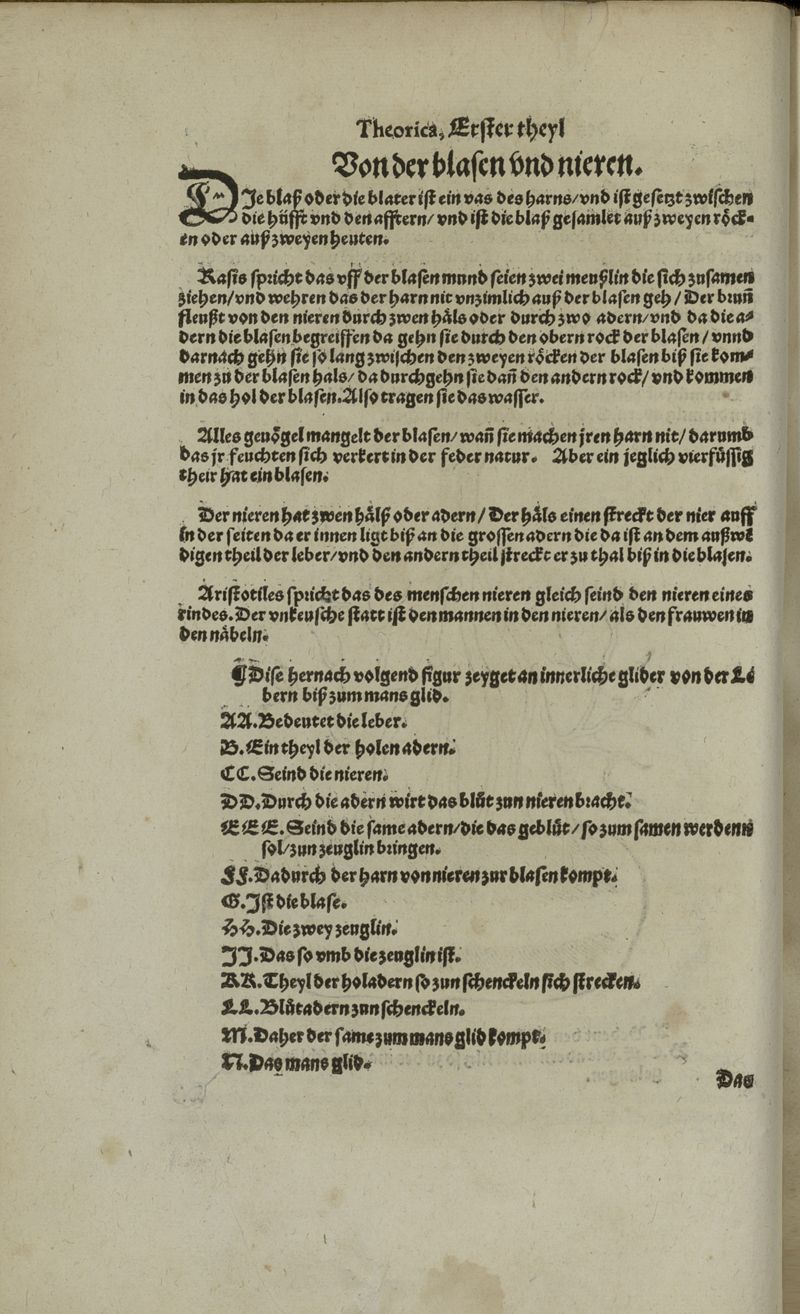 Theorica, Erster theyl
Von der blasen vnd nieren.
DIe blaß oder die blater ist ein vas des harns/vnd ist gesetzt zwischen
die hüfft vnd den afftern/ vnd ist die blaß gesamlet auß zweyen röck⸗
en oder auß zweyen heuten.
Rasis spricht das vff der blasen mund seien zwei meußlin die sich zusamen
ziehen/vnd wehren das der harn nit vnzimlich auß der blasen geh/ Der brun̄
fleußt von den nieren durch zwen häls oder durch zwo adern/vnd da die a⸗
dern die blasen begreiffen da gehn sie durch den obern rock der blasen/ vnnd
darnach gehn sie so lang zwischen den zweyen röcken der blasen biß sie kom⸗
men zu der blasen hals/ da durchgehn sie dañ den andern rock/ vnd kommen
in das hol der blasen. Also tragen sie das wasser.
Alles geuögel mangelt der blasen/ wañ sie machen jren harn nit/ darumb
das jr feuchten sich verkert in der feder natur. Aber ein jeglich vierfüssig
their hat ein blasen.
Der nieren hat zwen hälß oder adern/ Der häls einen streckt der nier auff
in der seiten da er innen ligt biß an die grossen adern die da ist an dem außwe
digen theil der leber/vnd den andern theil streckt er zu thal biß in die blasen.
Aristotiles spricht das des menschen nieren gleich seind den nieren eines
rindes. Der vnkeusche statt ist den mannen in den nieren/ als den frauwen in
den näbeln.
¶ Dise hernach volgend figur zeyget an innerliche glider von der Le
bern biß zum mans glid.
AA. Bedeutet die leber.
B. Ein theyl der holen adern.
CC. Seind die nieren.
DD. Durch die adern wirt das blůt zun nieren bracht.
EEE. Seind die same adern/die das geblůt/ so zum samen werdenn
sol/zun zeuglin bringen.
FF. Dadurch der harn von nieren zur blasen kompt.
G. Ist die blase.
HH. Die zwey zeuglin.
II. Das so vmb die zeuglin ist.
KK. Theyl der holadern so zun schenckeln sich strecken.
LL. Blůtadern zun schenckeln.
M. Daher der same zum mans glid kompt.
N. Das mans glid.
Das